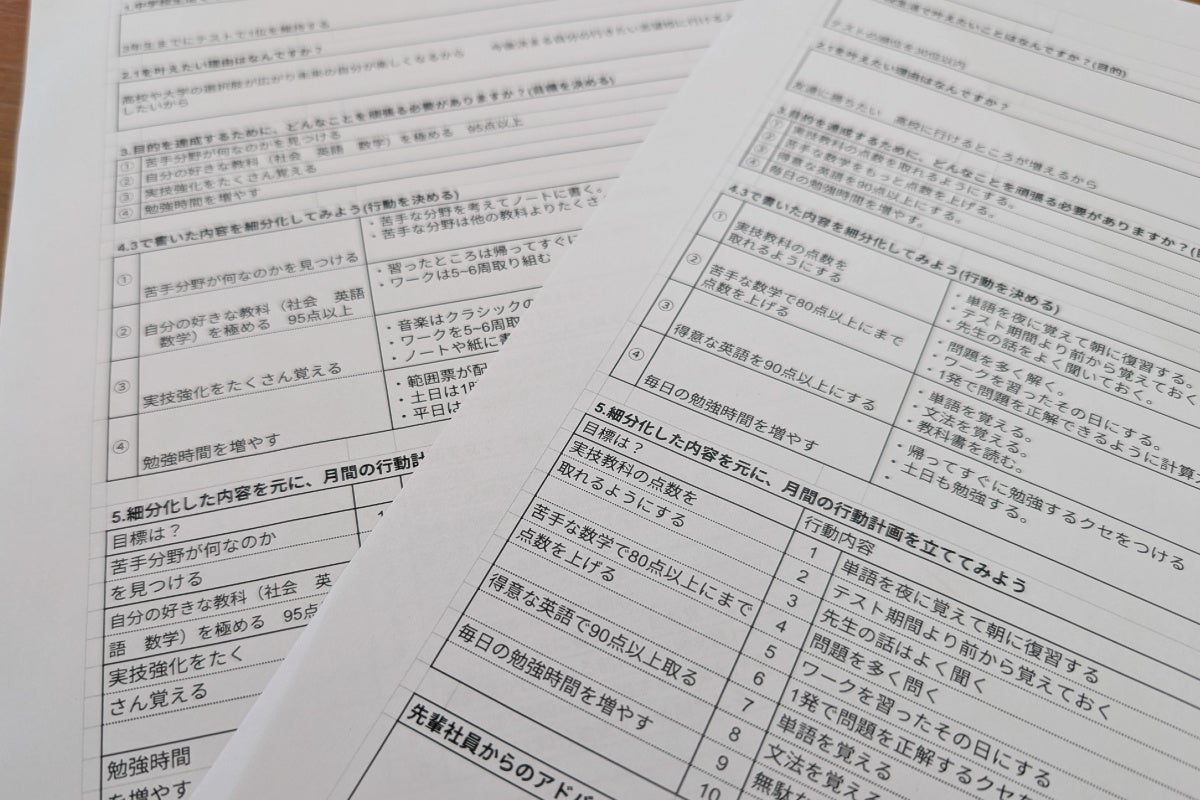 3年生までにテストで1位を維持する
2.1を叶えたい理由はなんですか？
高校や大学の選択肢が広がり未来の自分が楽しくなるから
したいから
3.目的を達成するために、どんなことを頑張る必要がありますか？(目標を決める)
① 苦手分野が何なのかを見つける
② 自分の好きな教科（社会　英語　数学）を極める　95点以上
③ 実技強化をたくさん覚える
④ 勉強時間を増やす
4.3で書いた内容を細分化してみよう(行動を決める)
① 苦手分野が何なのかを見つける
・苦手な分野を考えてノートに書く。
・苦手な分野は他の教科よりたくさ
② 自分の好きな教科（社会　英語
数学）を極める　95点以上
・習ったところは帰ってすぐに
・ワークは5~6周取り組む
③ 実技強化をたくさん覚える
・音楽はクラシックの
・ワークを5~6周取
・ノートや紙に書
④ 勉強時間を増やす
・範囲票が配
・土日は1時
・平日は
5.細分化した内容を元に、月間の行動計
目標は？
苦手分野が何なのか
を見つける
自分の好きな教科（社会　英
語　数学）を極める　95点
実技強化をたく
さん覚える
勉強時間
を増やす
生活で叶えたいことはなんですか？(目的)
テストの順位を30位以内
2.1を叶えたい理由はなんですか？
友達に勝ちたい　高校に行けるところが増えるから
3.目的を達成するために、どんなことを頑張る必要がありますか？(目
① 実技教科の点数を取れるようにする。
② 苦手な数学をもっと点数を上げる。
③ 得意な英語を90点以上にする。
④ 毎日の勉強時間を増やす。
4.3で書いた内容を細分化してみよう(行動を決める)
① 実技教科の点数を
取れるようにする
・単語を夜に覚えて朝に復習する。
・テスト期間より前から覚えておく
・先生の話をよく聞いておく。
② 苦手な数学で80点以上にまで
点数を上げる
・問題を多く解く。
・ワークを習ったその日にする。
・1発で問題を正解できるように計算
③ 得意な英語を90点以上にする
・単語を覚える。
・文法を覚える。
・教科書を読む。
④ 毎日の勉強時間を増やす
・帰ってすぐに勉強するクセをつける
・土日も勉強する。
・
5.細分化した内容を元に、月間の行動計画を立ててみよう
目標は？
行動内容
実技教科の点数を
取れるようにする
苦手な数学で80点以上にまで
点数を上げる
得意な英語で90点以上取る
毎日の勉強時間を増やす
1 単語を夜に覚えて朝に復習する
2 テスト期間より前から覚えておく
3 先生の話はよく聞く
4 問題を多く問く
5 ワークを習ったその日にする
6 1発で問題を正解するクセを
7 単語を覚える
8 文法を覚える
9 無駄な
10
先輩社員からのアドバ